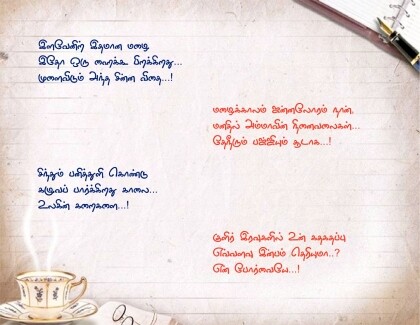 இளவேனிற் இதமான மழை
இதோ ஒரு ஹைக்கூ பிறக்கிறது...
முளைவிடும் அந்த சின்ன விதை...!
மழைக்காலம் ஜன்னலோரம் நான்,
மனதில் அம்மாவின் நினைவலைகள்...
தேநீரும் பஜ்ஜியும் சூடாக...!
சிந்தும் பனித்துளி கொண்டு
கழுவப் பார்க்கிறது காலை...
உலகின் கறைகளை...!
குளிர் இரவுகளில் உன் கதகதப்பு
எவ்வளவு இன்பம் தெரியுமா..?
என் போர்வையே...!